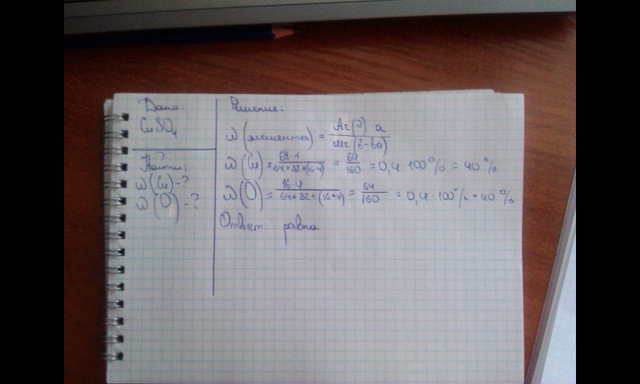 Дано:
CuSO₄
Найти:
ω(Cu) - ?
ω(O) - ?
Решение:
ω(элемента) = Ar(Э)·a / Mr(в-ва)
ω(Cu) = 64·1 / 64+32+(16·4) = 64/160 = 0,4·100% = 40%
ω(O) = 16·4 / 64+32+(16·4) = 64/160 = 0,4·100% = 40%
Ответ: равна